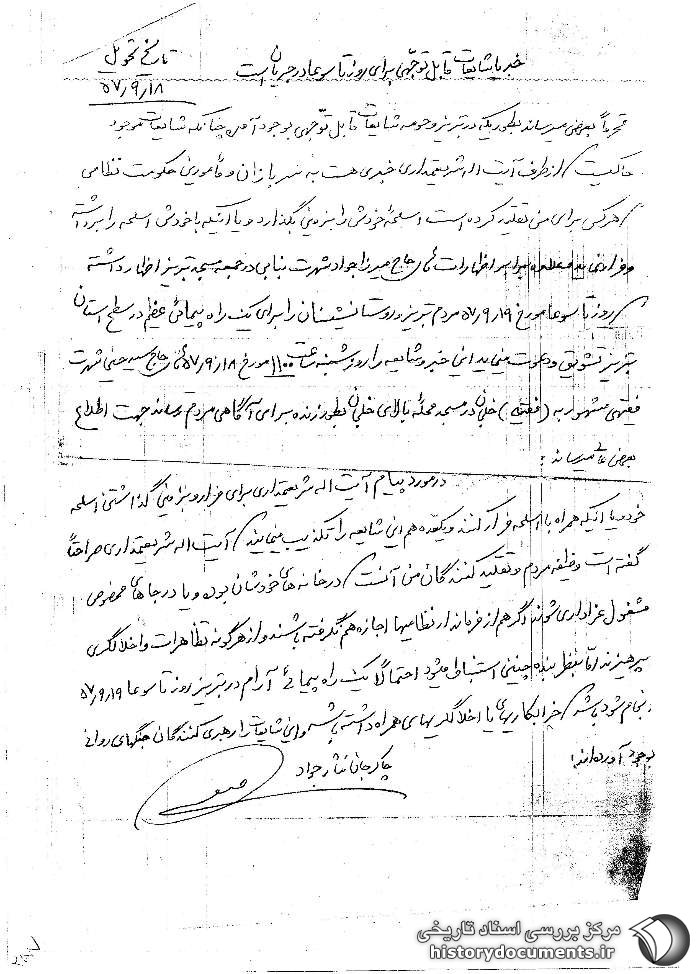 تاریخ تحویل
۵۷/۹/۱۸
خبر یا شایعات قابل توجهی برای روز تاسوعا در جریان است
محترماً بعرض میرساند بطوریکه در تبریز و حومه شایعات قابل توجهی بوجود آمده چنانکه شایعات موجود
حاکیست از طرف آیت اله شریعتمداری خبری هست به سربازان و مأمورین حکومت نظامی
هر کس برای من تقلید کرده است اسلحه خودش را بزمین بگذارد و یا اینکه با خودش اسلحه را برداشته
و فرار نماید علاوه بر این اظهارات حاج میرزا جواد شهرت بنابی در جمعه مسجد تبریز اظهار داشته
روز تاسوعا مورخ ۵۷/۹/۱۹ مردم تبریز و روستانشینان را برای یک راه پیمائی عظیم در سطح استان
تبریز تشویق و دعوت مینماید این خبر و شایعه را روز شنبه ساعت ۱۱۰۰ مورخ ۵۷/۹/۱۸ حاج سید شهرت
فقهی مشهور به (فقهی) در مسجد محله بالای بطور زنده برای آگاهی مردم رساند جهت اطلاع
بعرض عالی میرساند:
در مورد پیام آیت اله شریعتمداری برای فرار و بزمین گذاشتن اسلحه
خود و یا اینکه همراه با اسلحه فرار کنند و یکعده هم این شایعه را تکذیب مینمایند آیت اله شریعتمداری صراحتاً
گفته است وظیفه مردم و تقلید کنندگان من آنست در خانه های خودشان بوده و یا در جاهای مخصوص
مشغول عزاداری شوند اگر هم از فرماندار نظامیها اجازه هم نگرفته باشند و از هرگونه تظاهرات و اخلالگری
بپرهیزند امّا بنظر بنده چنین استنباط میشود احتمالاً یک راه پیمائی آرام در تبریز روز تاسوعا ۵۷/۹/۱۹
انجام شود خرابکاریهای یا اخلالگریهای همراه داشته باشد و این شایعات را رهبری کنندگان جنگهای روانی
بوجود آورده‌اند:
چاکر جان نثار جواد
مرکز بررسی اسناد تاریخی
historydocuments.ir